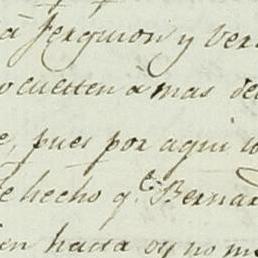 á Ferguson y Ver
ocutten a mas de
e, pues por aqui
e hecho q.e Bernar
en hasta oy no m